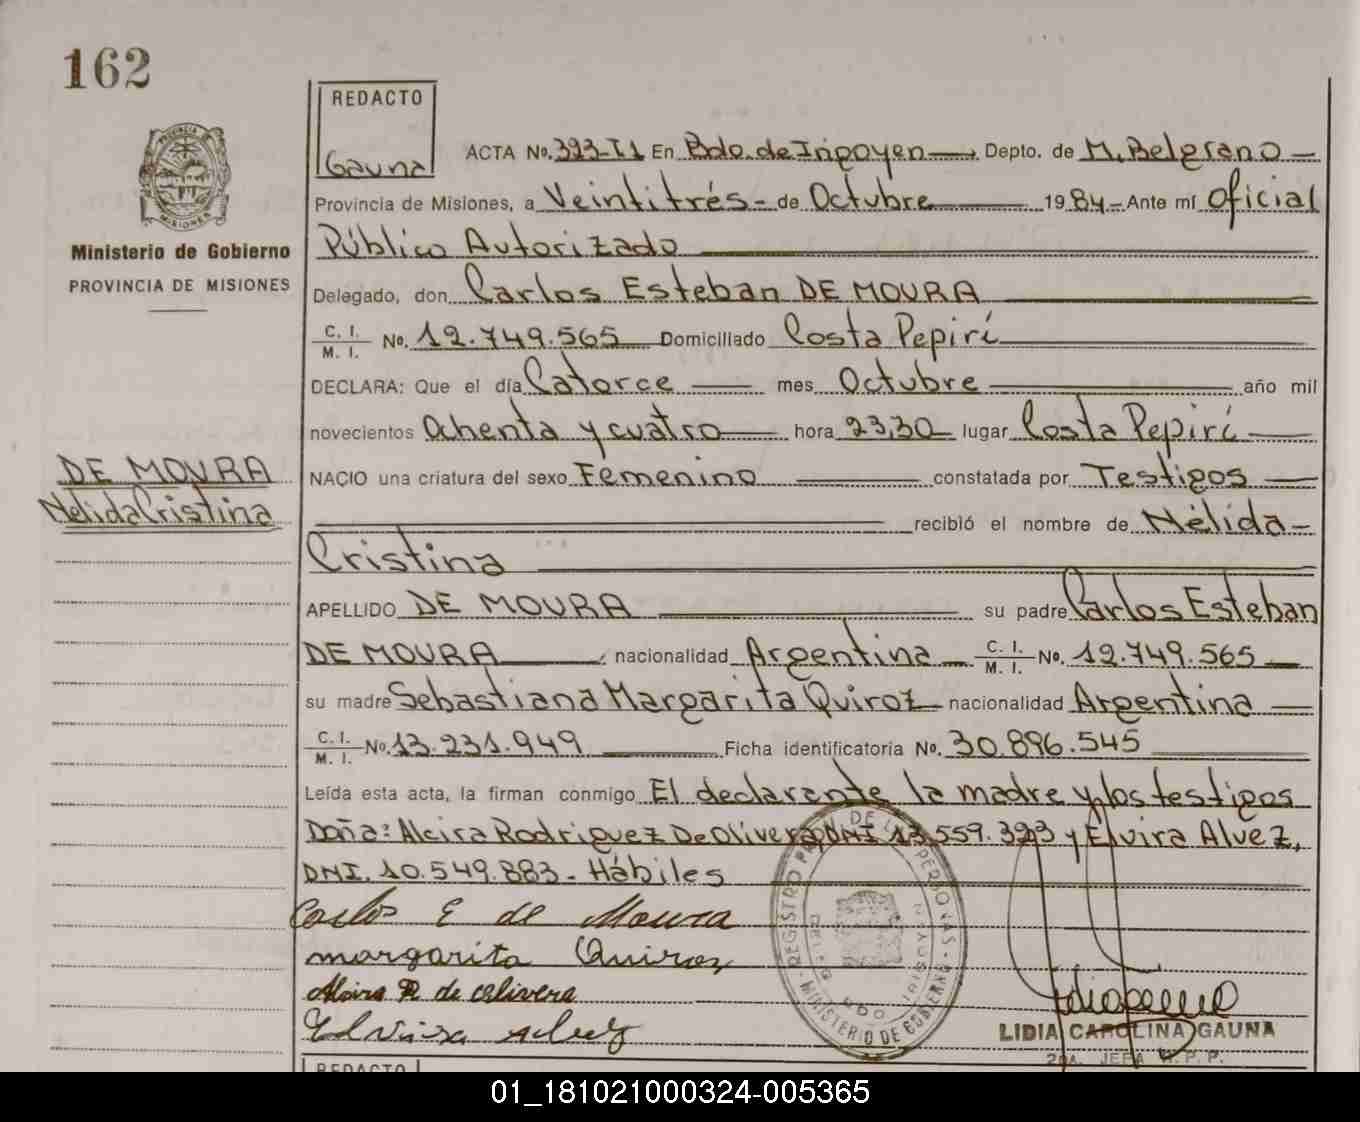 162
REDACTO
Gauna
ACTA No. 393-T1 En Bdo. de Irigoyen Depto. de M. Belgrano
Provincia de Misiones, a Veintitrés de Octubre 1984 Ante mí Oficial
Público Autorizado
Ministerio de Gobierno
PROVINCIA DE MISIONES
Delegado, don Carlos Esteban DE MOURA
C. I.
M. I. No. 12.749.565 Domiciliado Costa Pepirí
DECLARA: Que el día Catorce mes Octubre año mil
novecientos Ochenta y cuatro hora 23,30 lugar Costa Pepirí
DE MOURA
Nelida Cristina
NACIO una criatura del sexo Femenino constatada por Testigos
recibió el nombre de Nélida-
Cristina
APELLIDO DE MOURA su padre Carlos Esteban
DE MOURA nacionalidad Argentina C. I.
M. I. No. 12.749.565
su madre Sebastiana Margarita Quiroz nacionalidad Argentina
C. I.
M. I. No. 13.231.949 Ficha identificatoria No. 30.896.545
Leída esta acta, la firman conmigo El declarante la madre y los testigos
Doña: Alcira Rodriguez De Olivera, DNI 13.559.393 y Elvira Alvez,
DNI. 10.549.883- Hábiles
Carlos E de Moura
margarita Quiroz
Alcira R de olivera
Elvira alvez
REGISTRO PROV. DE LAS PERSONAS
MINISTERIO DE GOBIERNO
LIDIA CAROLINA GAUNA
2DA. JEFA R. P. P.
REDACTO
01_181021000324-005365